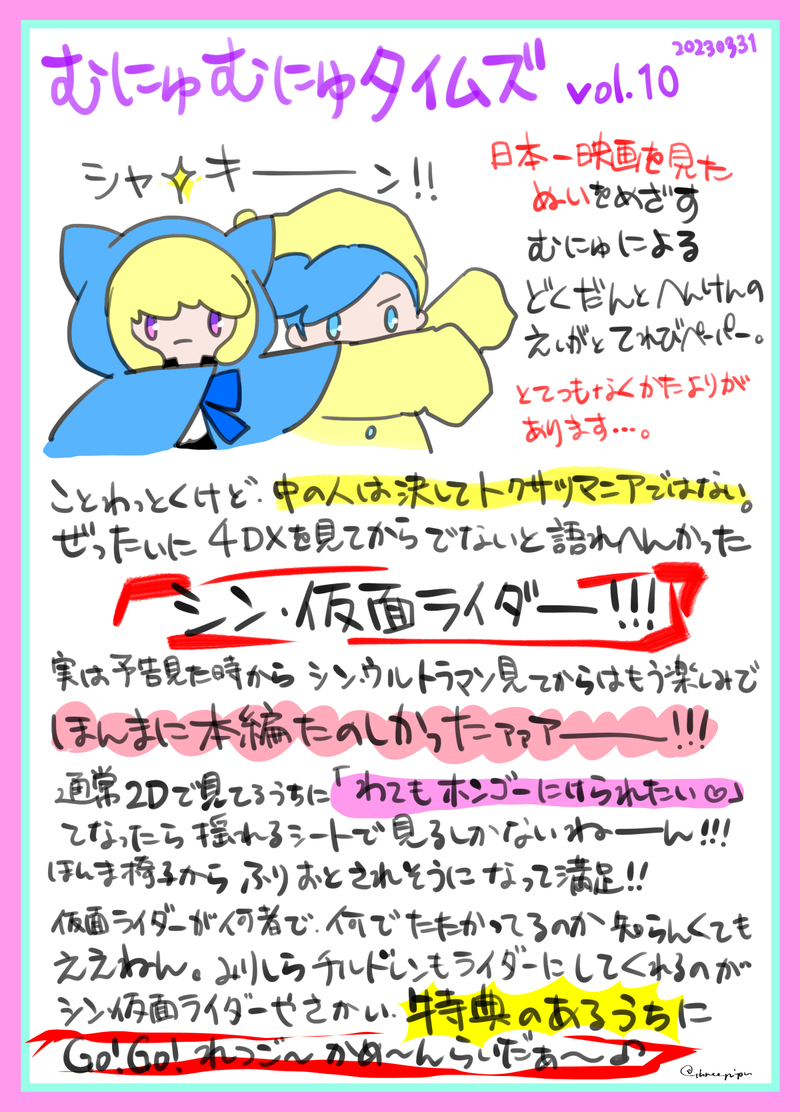 むにゅむにゅタイムズ vol.10
20230331
シャキーーーン!!
日本一映画を見た
ぬいをめざす
むにゅによる
どくだんとへんけんの
えいがとてれびペーパー。
とてつもなくかたよりが
あります…。
ことわっとくけど、中の人は決してトクサツマニアではない。
ぜったいに4DXを見てからでないと語れへんかった
「シン・仮面ライダー!!!」
実は予告見た時からシン・ウルトラマン見てからはもう楽しみで
ほんまに本編たのしかったァァァーーー!!!
通常2Dで見てるうちに「わてもホンゴーにけられたい♡」
てなったら揺れるシートで見るしかないねーーん!!!
ほんま椅子からふりおとされそうになって満足!!
仮面ライダーが何者で、何でたたかってるのか知らんくても
ええねん。みりしらチルドレンもライダーにしてくれるのが
シン・仮面ライダーやさかい、特典のあるうちに
Go!Go!れつご〜かめ〜んらいだぁ〜♪